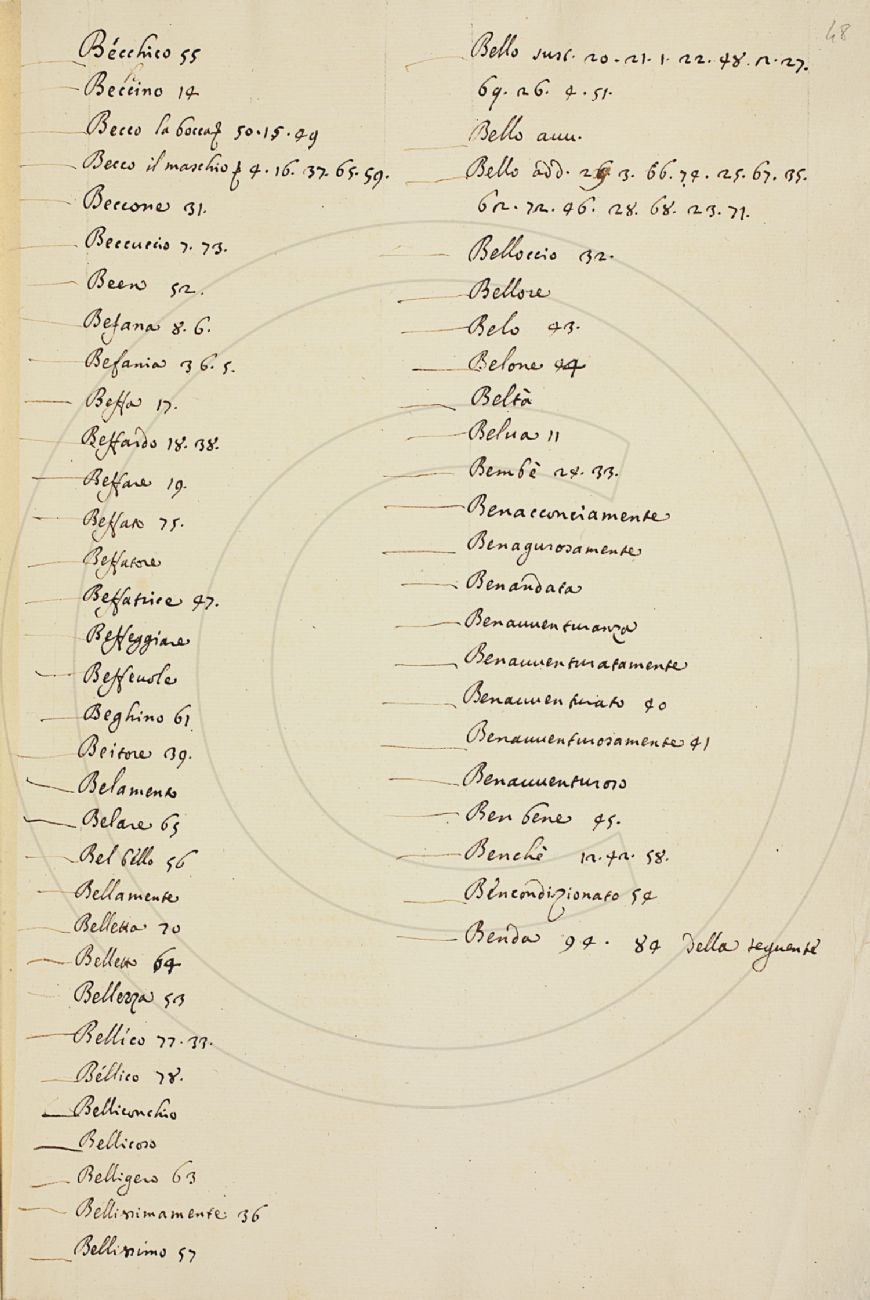 48
Bécchico 55
Beccino 14
Becco la bocca 50. 15. 49
Becco il maschio 4. 16. 37. 65. 59.
Beccone 31.
Beccuccio 7. 73.
Becero 52.
Befana 8. 6.
Befania 3 6. 5.
Beffa 17.
Beffardo 18. 38.
Beffare 19.
Beffato 75.
Beffatore
Beffatrice 47.
Beffeggiare
Beffevole
Beghino 61
Beitore 39.
Belamento
Belare 65
Bel béllo 56
Bellamente
Belletta 70
Belletto 64
Bellezza 53
Bellíco 77. 33.
Béllico 78.
Belliconchio
Bellicoso
Belligero 63
Bellissimamente 36
Bellissimo 57
Bello sust. 20. 21. 1. 22. 48. 2. 27.
69. 26. 4. 51.
Bello auu.
Bello add. 3. 66. 74. 25. 67. 35.
62. 72. 46. 28. 68. 23. 71.
Belloccio 32.
Bellore
Belo 43.
Belone 44
Beltà
Belua 11
Bembè 24. 33.
Benacconciamente
Benagurosamente
Benandata
Benauuenturanza
Benauuenturatamente
Benauuenturato 40
Benauuenturosamente 41
Benauuenturoso
Ben bene 45.
Benchè 12. 42. 58.
Bencondizionato 54
Benda 94. 84 della seguente